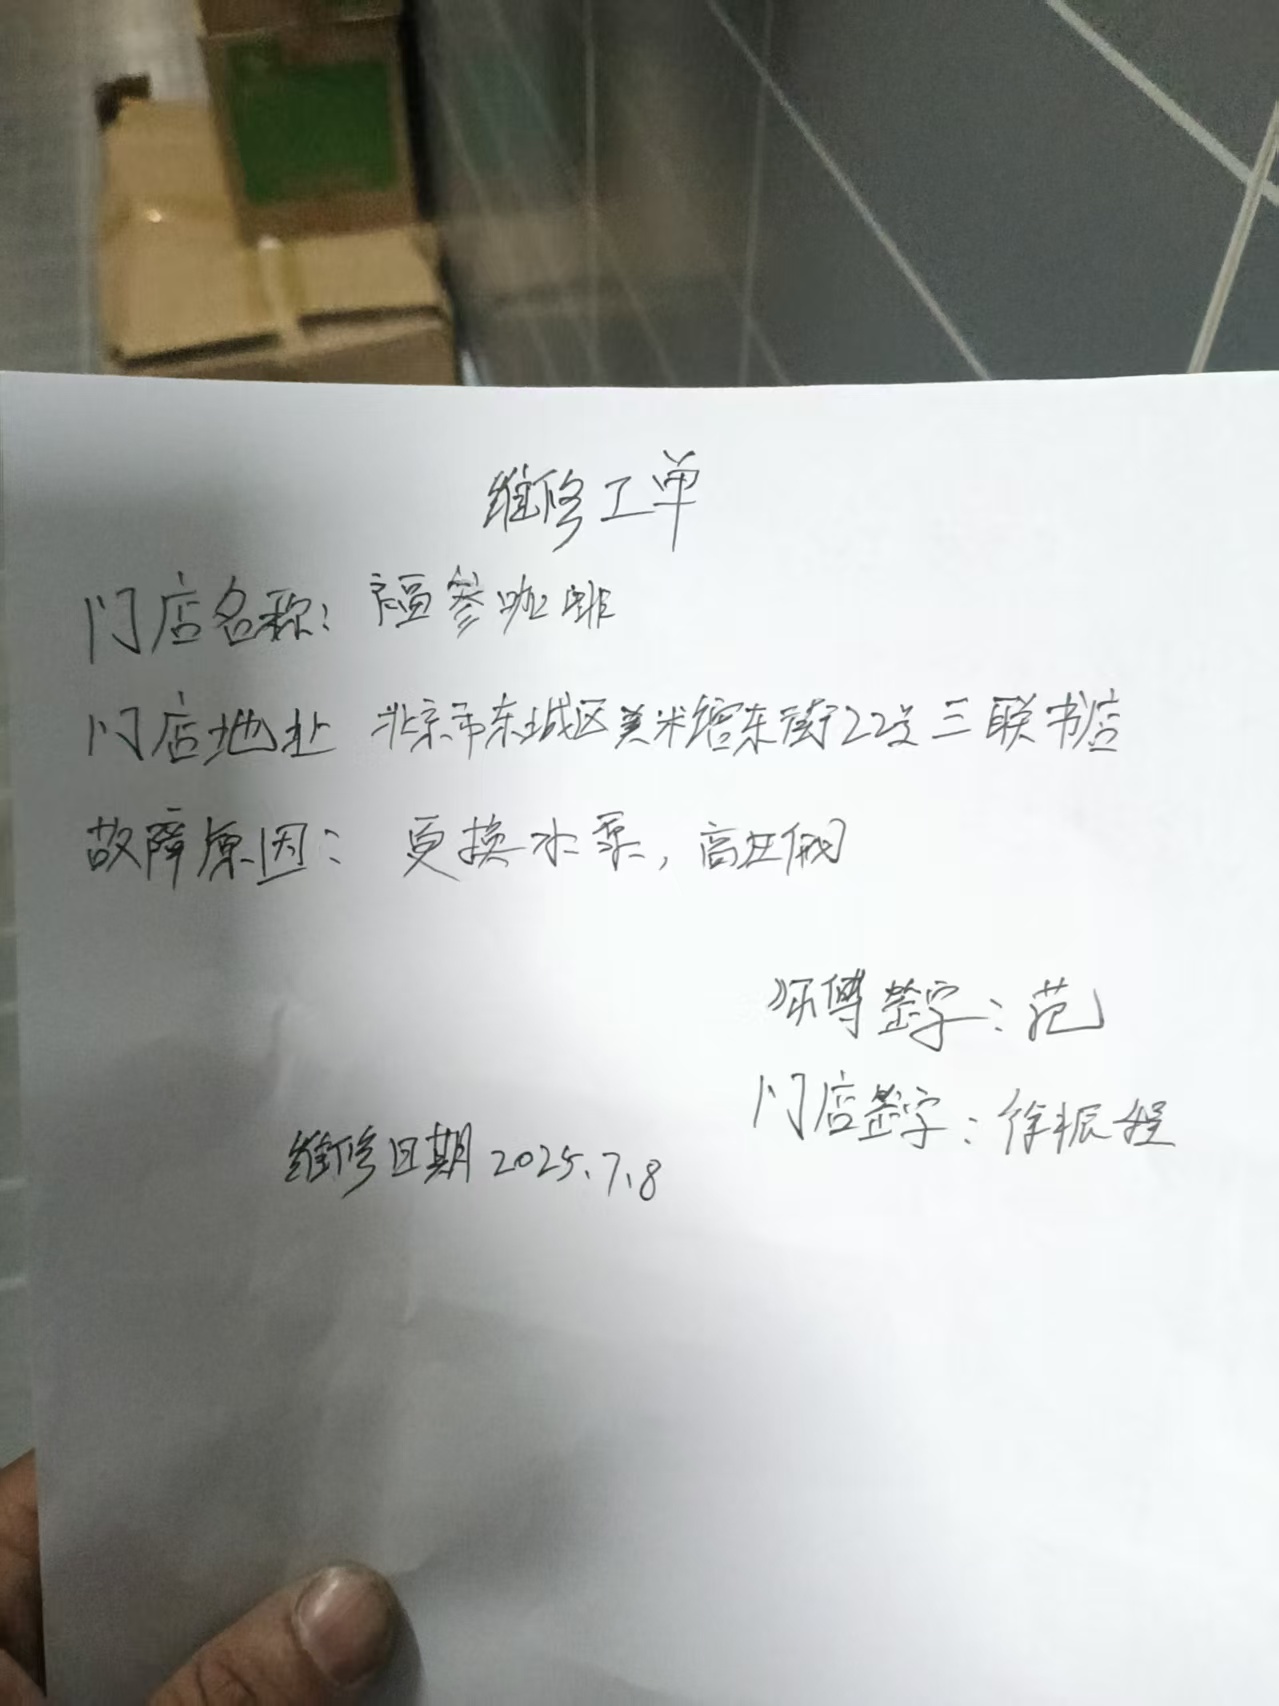 维修工单
门店名称：福参咖啡
门店地址 北京市东城区美术馆东街22号三联书店
故障原因：更换水泵，高压阀
师傅签字：范
门店签字：徐振
维修日期 2025.7.8